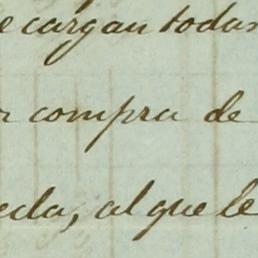 e cargan todas
compra de
eda, al que le